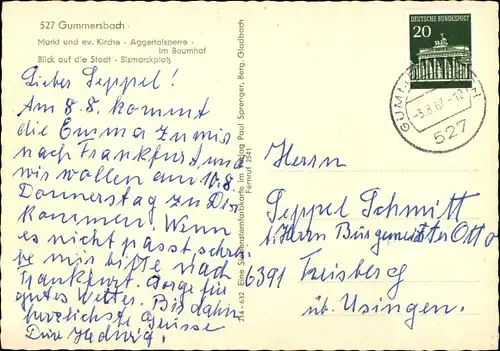 527 Gummersbach
Markt und ev. Kirche · Aggertalsperre ·
Im Baumhof
Blick auf die Stadt · Bismarckplatz
Lieber Seppel!
Am 8.8. kommt
die Emma zu mir
nach Frankfurt und
wir wollen am 10.8.
Donnerstag zu Dir
kommen. Wenn
es nicht passt, schrei-
be mir bitte nach
Frankfurt. Sorge für
gutes Wetter. Bis dahin
herzlichste Grüsse
Deine Hedwig.
214 - 632 Eine Sechssternfarbkarte im Verlag Paul Sprenger, Berg. Gladbach
Fernruf 2541
DEUTSCHE BUNDESPOST
20
GUMMERSBACH
-3.8.67-12
527
Herrn
Seppel Schmitt
b. Herrn Bürgermeister Otto
6391 Treisberg
üb. Usingen.